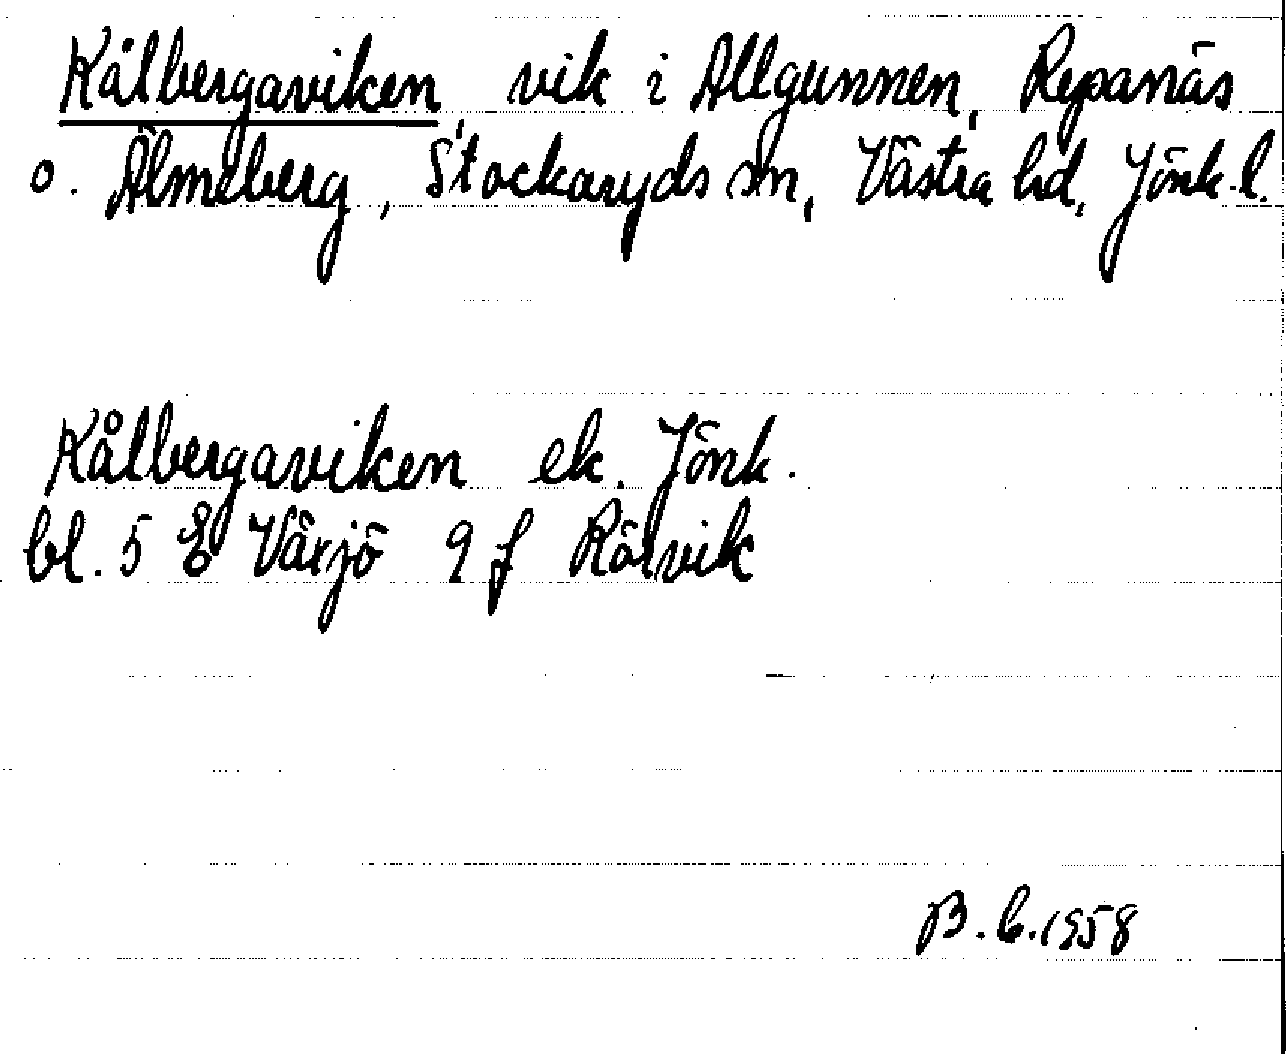 Kålbergaviken, vik i Allgunnen, Repanäs
o. Älmeberg, Stockaryds sn, Västra hd, Jönk. l.
Kålbergaviken ek. Jönk.
bl. 5 E Växjö 9 f Rörvik
B.C. 1958